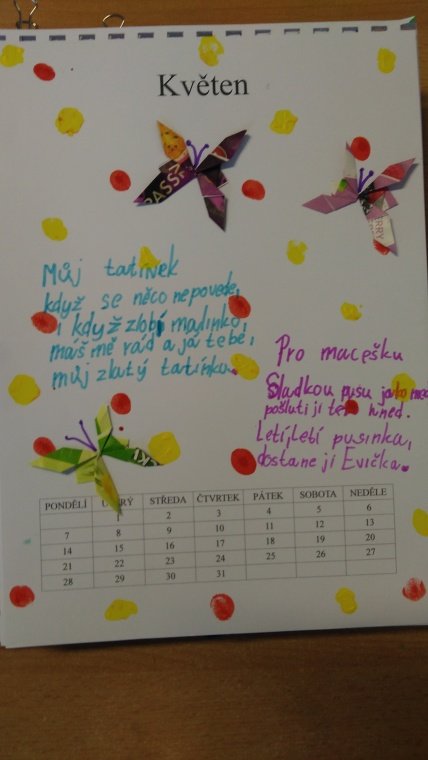 Květen
Můj tatínek
když se něco nepovede,
i když zlobí malinko,
máš mě rád a já tebe,
můj zlatý tatínku.
Pro macešku
Sladkou pusu jako
pošluti ji teď hned.
Letí, letí pusinka,
dostane ji Evička.
PONDĚLÍ STŘEDA ČTVRTEK PÁTEK SOBOTA NEDĚLE
1 2 3 4 5 6
7 8 9 10 11 12 13
14 15 16 17 18 19 20
21 22 23 24 25 26 27
28 29 30 31